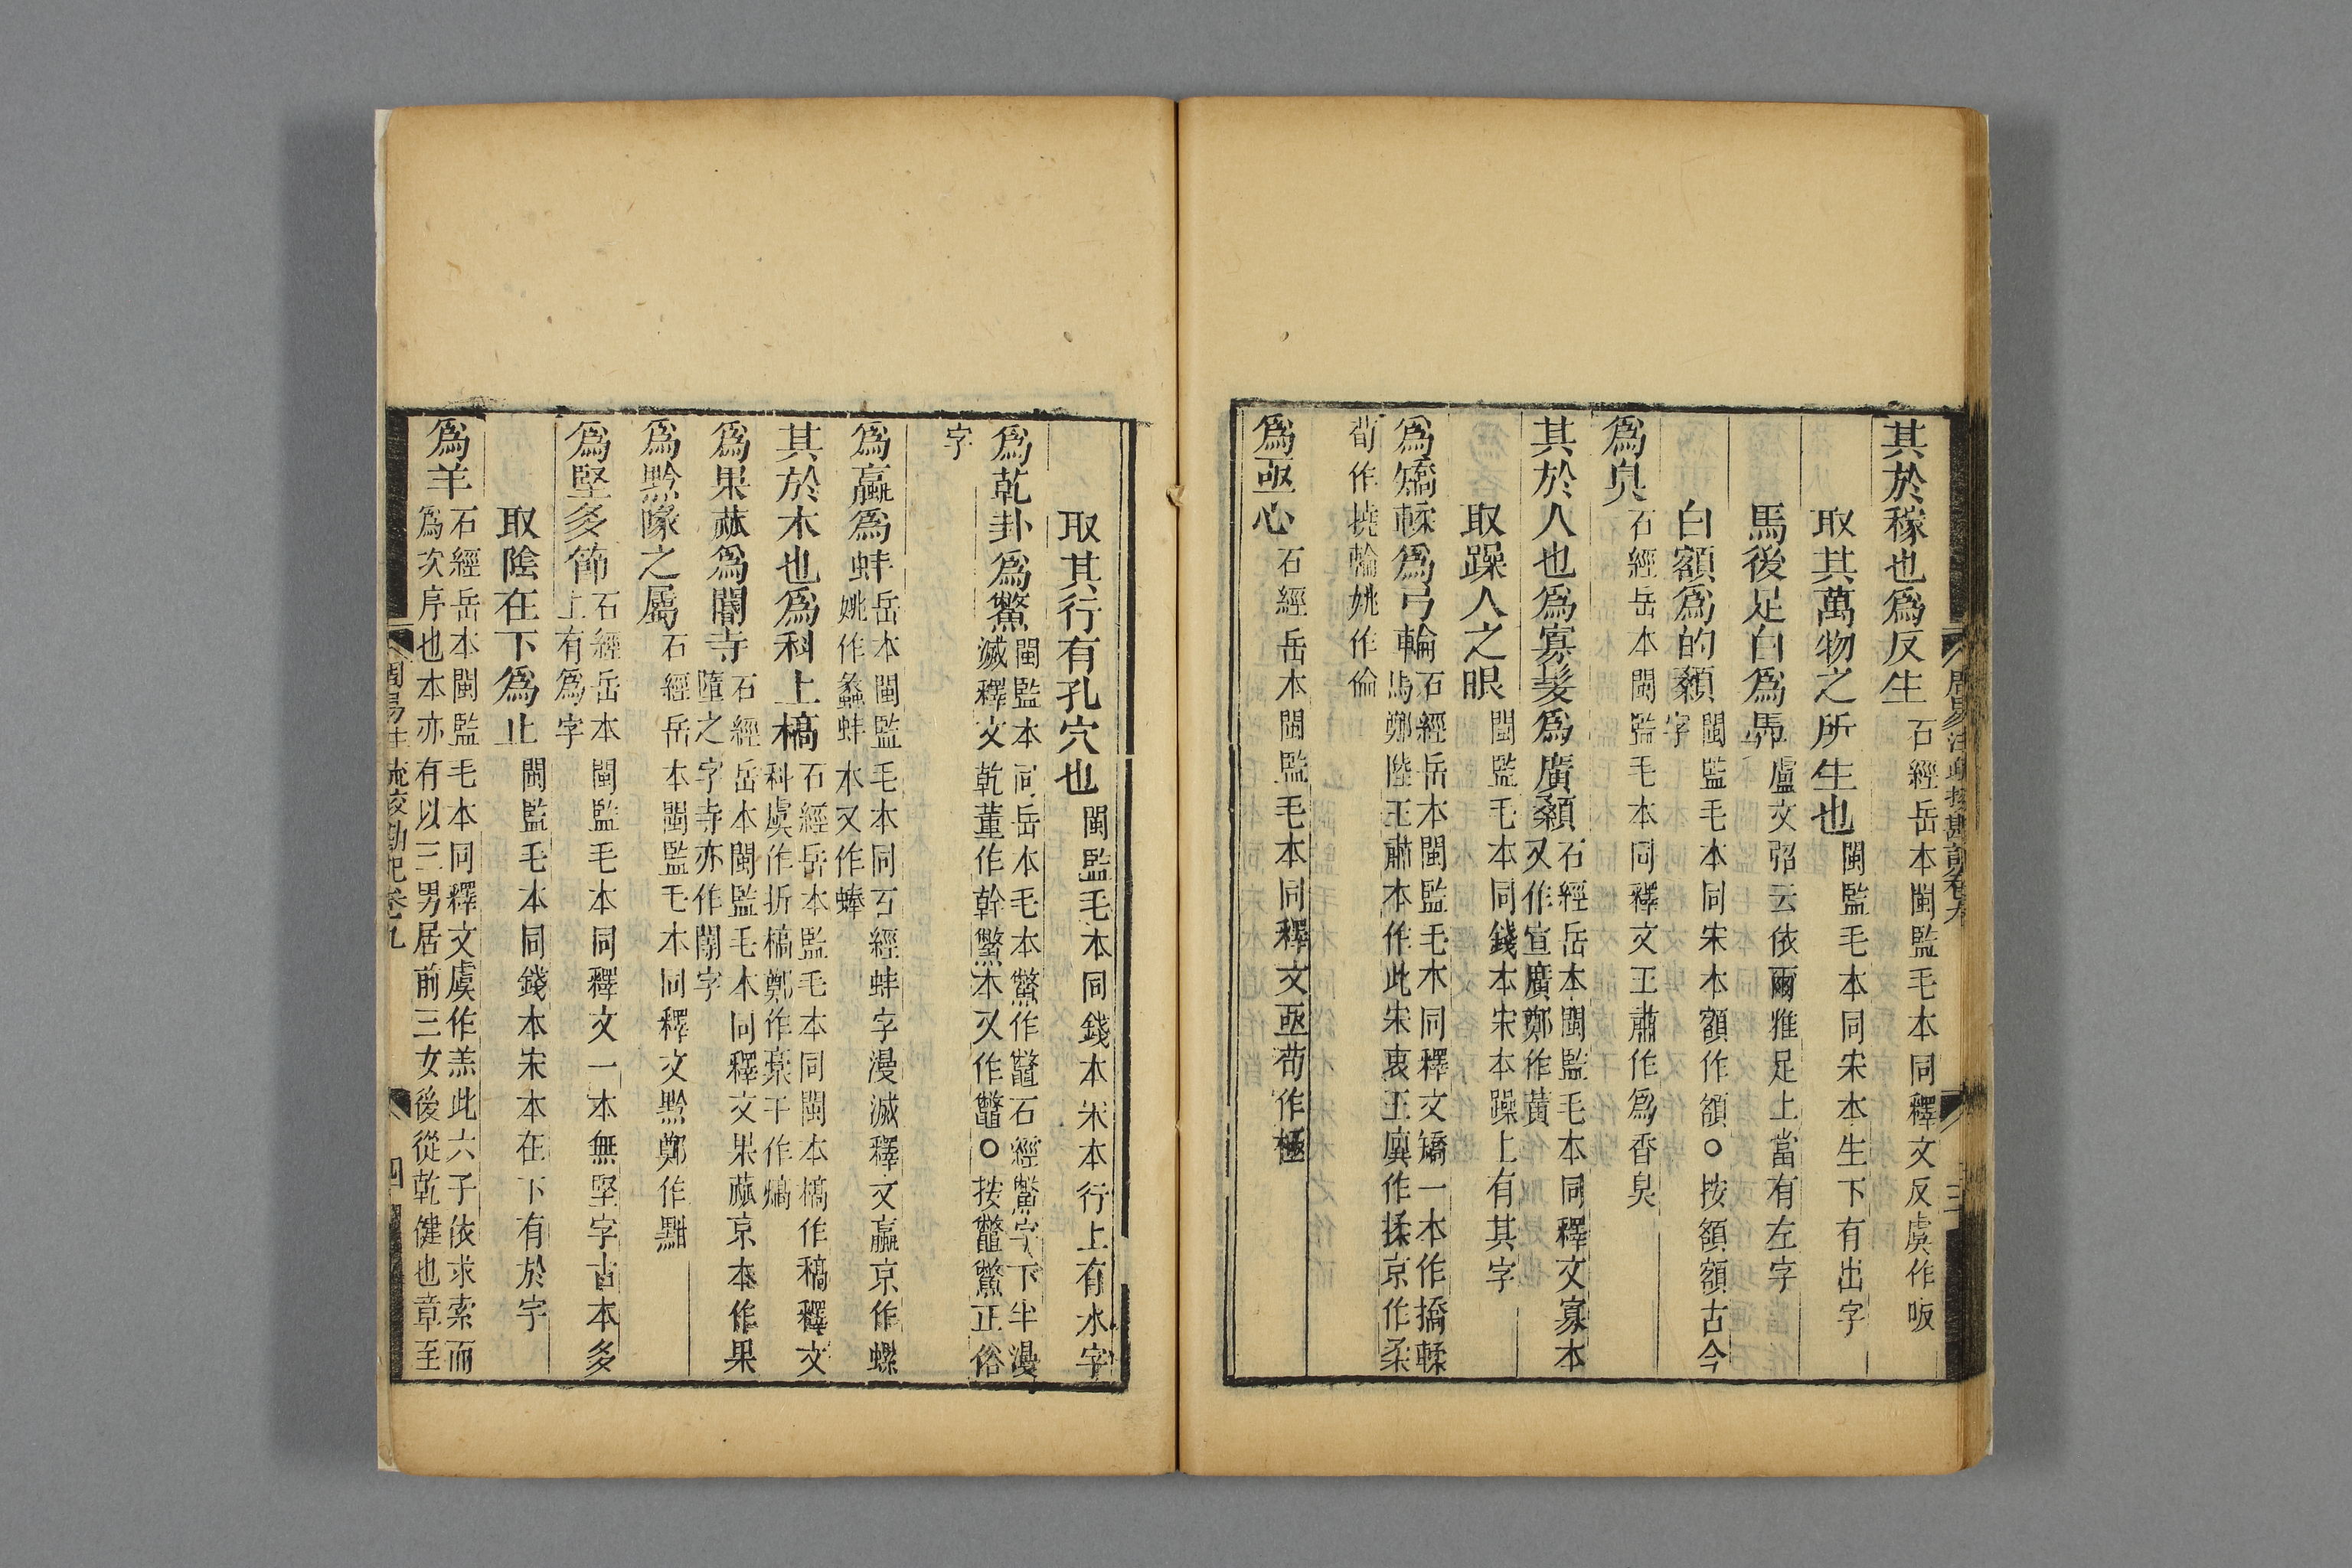 周易注疏挍勘記卷九
三
其於稼也爲反生石經岳本閩監毛本同釋文反虞作阪
取其萬物之所生也閩監毛本同宋本生下有出字
馬後足白爲馵盧文弨云依爾雅足上當有左字
白額爲的顙閩監毛本同宋本額作頟○按頟額古今
字
爲臭石經岳本閩監毛本同釋文王肅作爲香臭
其於人也爲寡髮爲廣顙石經岳本閩監毛本同釋文寡本
又作宣廣鄭作黃
取躁人之眼閩監毛本同錢本宋本躁上有其字
爲矯輮爲弓輪石經岳本閩監毛本同釋文矯一本作撟輮
馬鄭陸王肅本作此宋衷王廙作揉京作柔
荀作撓輪姚作倫
爲亟心石經岳本閩監毛本同釋文亟荀作極
取其行有孔穴也閩監毛本同錢本宋本行上有水字
爲乾卦爲鱉閩監本同岳本毛本鱉作鼈石經鱉字下半漫
滅釋文乾董作幹鱉本又作鼈○按鼈鱉正俗
字
爲蠃爲蚌岳本閩監毛本同石經蚌字漫滅釋文蠃京作螺
姚作蠡蚌本又作蜯
其於木也爲科上槁石經岳本監毛本同閩本槁作稿釋文
科虞作折槁鄭作槀干作熇
爲果蓏爲閽寺石經岳本閩監毛本同釋文果蓏京本作果
墮之字寺亦作閽字
爲黔喙之屬石經岳本閩監毛本同釋文黔鄭作黚
爲堅多節石經岳本閩監毛本同釋文一本無堅字古本多
上有爲字
取陰在下爲止閩監毛本同錢本宋本在下有於字
爲羊石經岳本閩監毛本同釋文虞作羔此六子依求索而
爲次序也本亦有以三男居前三女後從乾健也章至
周易注疏挍勘記卷九
四